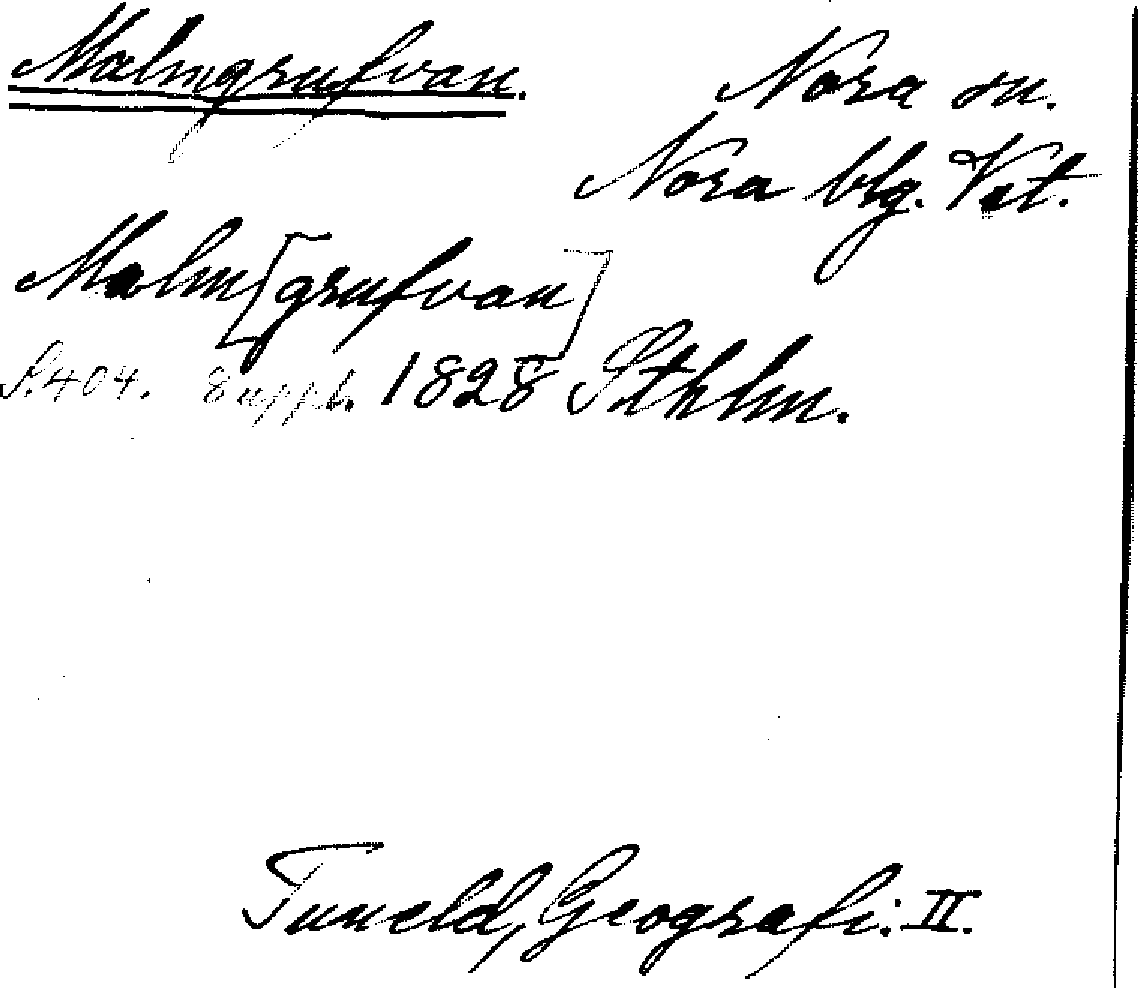 Malmgrufvan.
Nora sn.
Nora blg. Vst.
Malm[grufvan]
S. 404. Suppl. 1828 Sthlm.
Tuneld, Geografi. II.